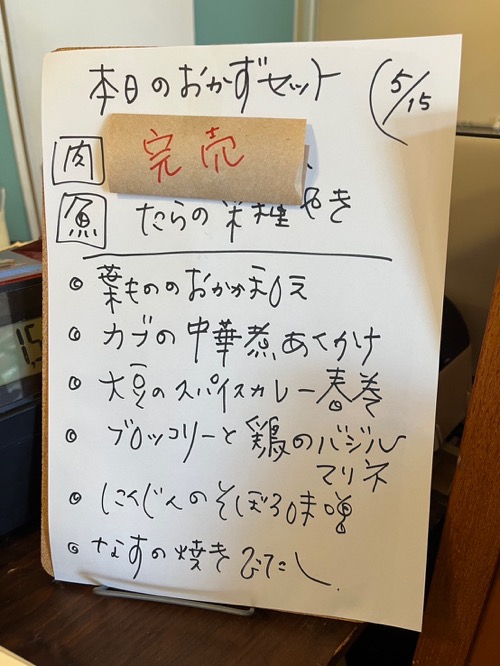 本日のおかずセット (5/15
肉 完売
魚 たらの 種やき
葉もののおかか和え
カブの中華煮あんかけ
大豆のスパイスカレー春巻
ブロッコリーと鶏のバジル
マリネ
にんじんのそぼろ味噌
なすの焼きびたし
15